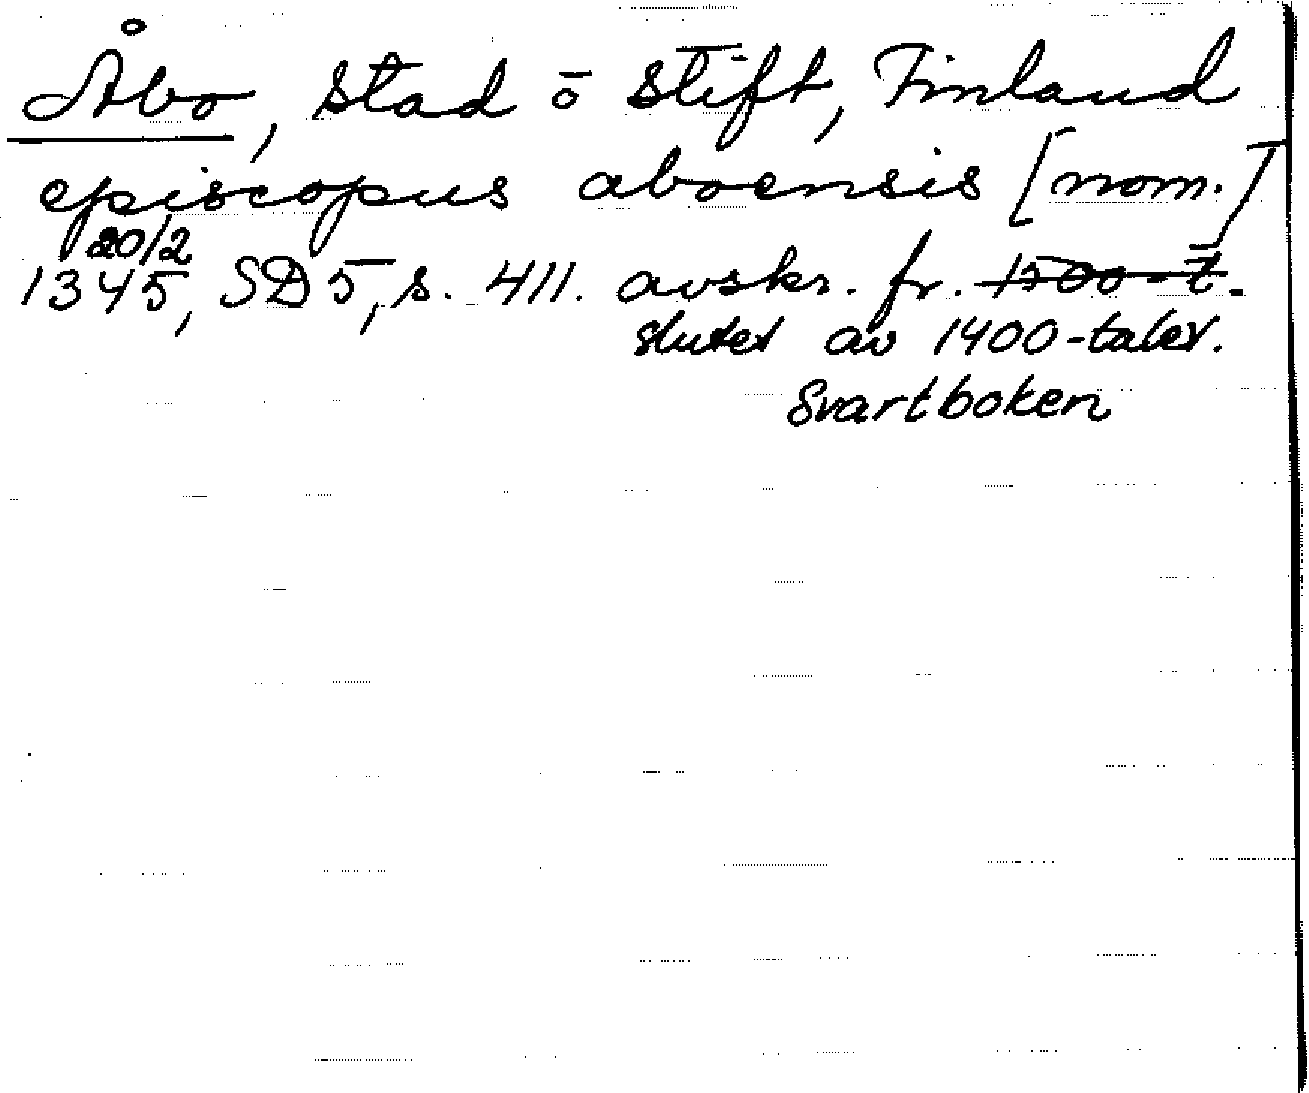 Åbo, stad ō stift, Finland
episcopus aboensis [nom.]
20/2
1345, SD 5, s. 411. avskr. fr. 1500-t.
slutet av 1400-talet.
Svartboken